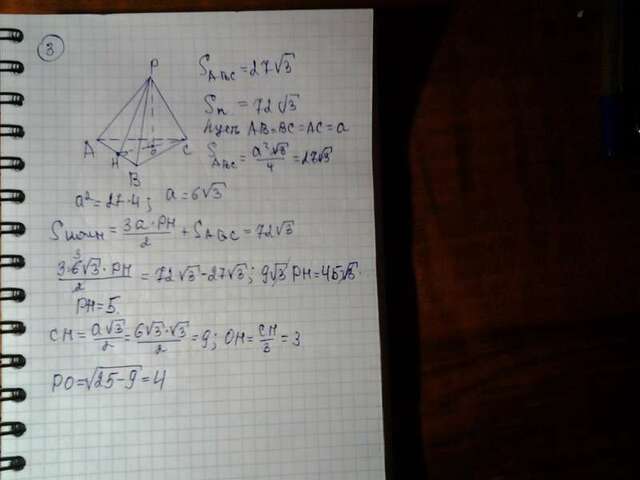 3
P
A
H
B
O
C
S_ABC = 27√3
Sп = 72√3
Пусть AB=BC=AC=a
S_ABC = a²√3/4 = 27√3
a² = 27·4; a = 6√3
Sполн = 3a·PH/2 + S_ABC = 72√3
3·6√3·PH/2 = 72√3-27√3; 9√3 PH = 45√3
3
PH = 5.
CH = a√3/2 = 6√3·√3/2 = 9; OH = CH/3 = 3
PO = √25-9 = 4